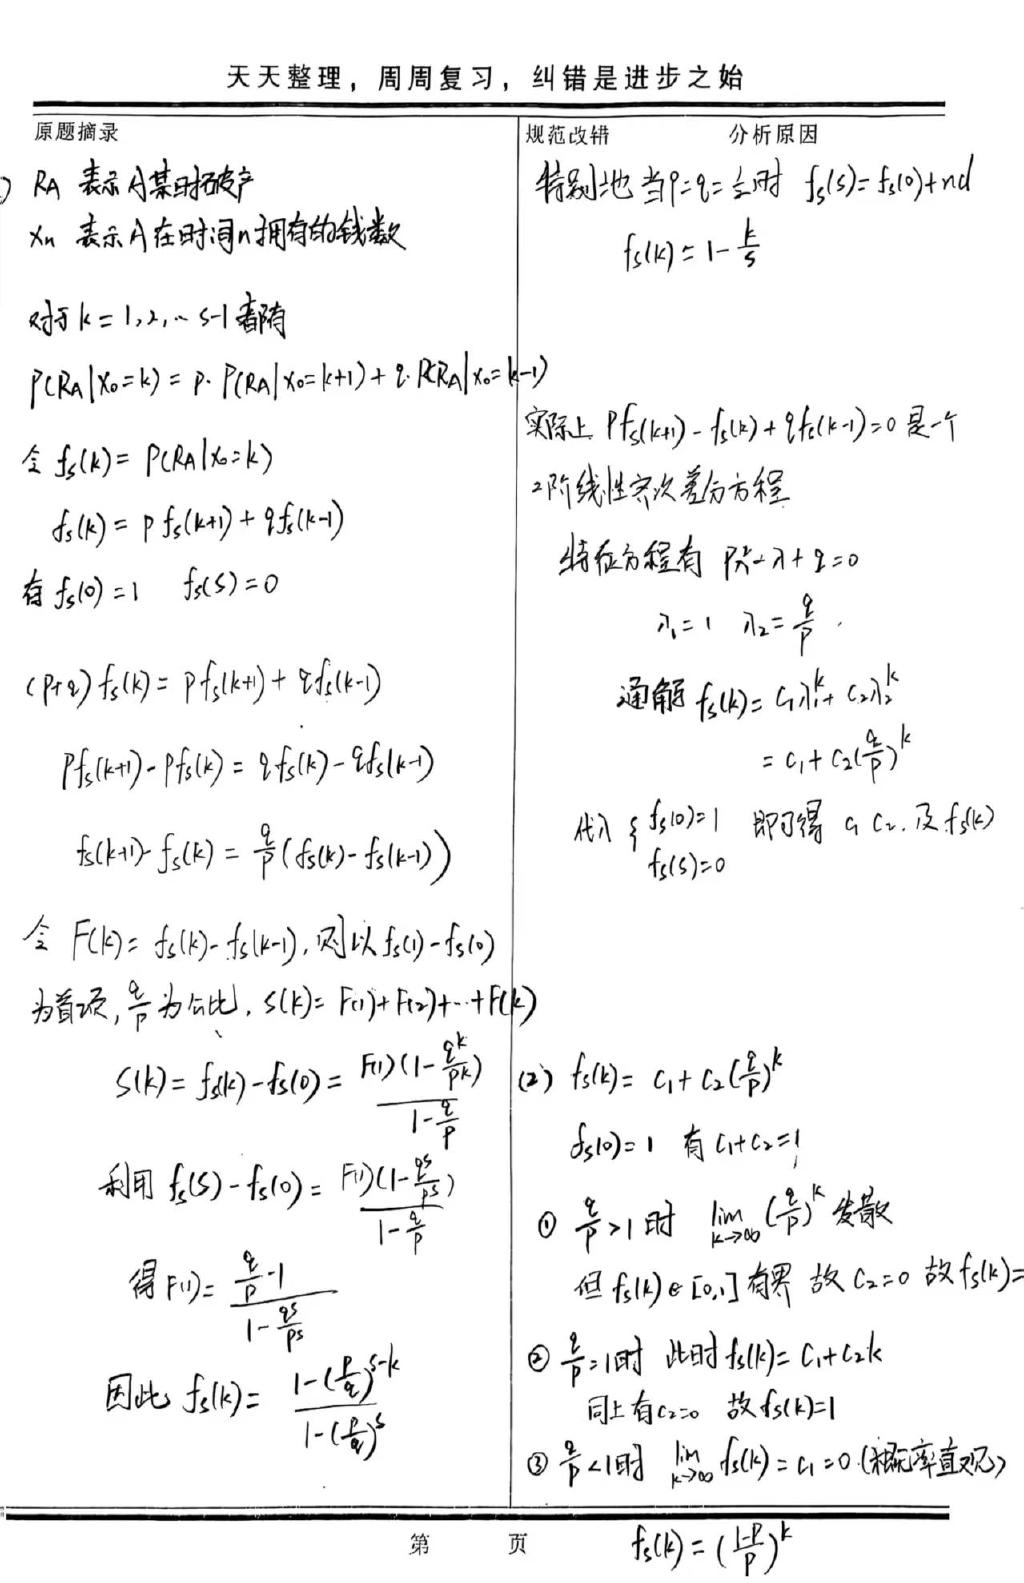 天天整理，周周复习，纠错是进步之始
原题摘录
) RA 表示A某时破产
Xn 表示A在时间n拥有的钱数
对于k=1,2,… S-1都有
P(RA|X₀=k) = p·P(RA|X₀=k+1)+q·P(RA|X₀=k-1)
令 fs(k)= P(RA|X₀=k)
fs(k) = p fs(k+1)+ q fs(k-1)
有 fs(0)=1 fs(S)=0
(p+q) fs(k)= p fs(k+1)+ q fs(k-1)
pfs(k+1)-pfs(k) = q fs(k)-q fs(k-1)
fs(k+1)-fs(k) = q/p (fs(k)-fs(k-1))
令 F(k)= fs(k)-fs(k-1), 则以 fs(1)-fs(0)
为首项, q/p 为公比, S(k)= F(1)+F(2)+…+F(k)
S(k)= fs(k)-fs(0)= F(1)(1-q^k/p^k) / (1-q/p)
利用 fs(S)-fs(0)= F(1)(1-q^s/p^s) / (1-q/p)
得 F(1)= (q/p -1) / (1-q^s/p^s)
因此 fs(k)= (1-(p/q)^(s-k)) / (1-(p/q)^s)
规范改错 分析原因
特别地 当p=q=½时 fs(s)=fs(0)+nd
fs(k)=1-k/s
实际上 Pfs(k+1)-fs(k)+qfs(k-1)=0 是一个
2阶线性齐次差分方程
特征方程有 Pλ²-λ+q=0
λ₁=1 λ₂=q/p.
通解 fs(k)= C₁λ₁^k+ C₂λ₂^k
= C₁+ C₂(q/p)^k
代入 { fs(0)=1 即可得 C₁ C₂. 及 fs(k)
fs(S)=0
(2) fs(k)= C₁+ C₂(q/p)^k
fs(0)=1 有 C₁+C₂=1
① q/p>1时 lim k→∞ (q/p)^k 发散
但 fs(k)∈[0,1] 有界 故 C₂=0 故 fs(k)=
② q/p=1时 此时 fs(k)= C₁+C₂k
同上有C₂=0 故 fs(k)=1
③ q/p<1时 lim k→∞ fs(k)= C₁=0 (概率直观)
fs(k)= ((1-p)/p)^k
第 页